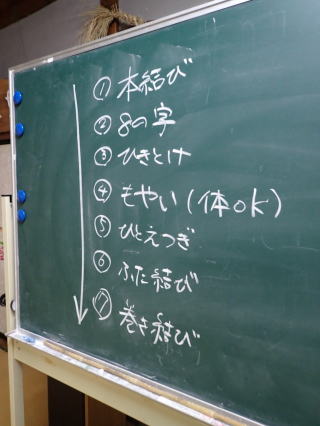 ① 本結び
② 8の字
③ ひきとけ
④ もやい(体OK)
⑤ ひとえつぎ
⑥ ふた結び
⑦ 巻き結び